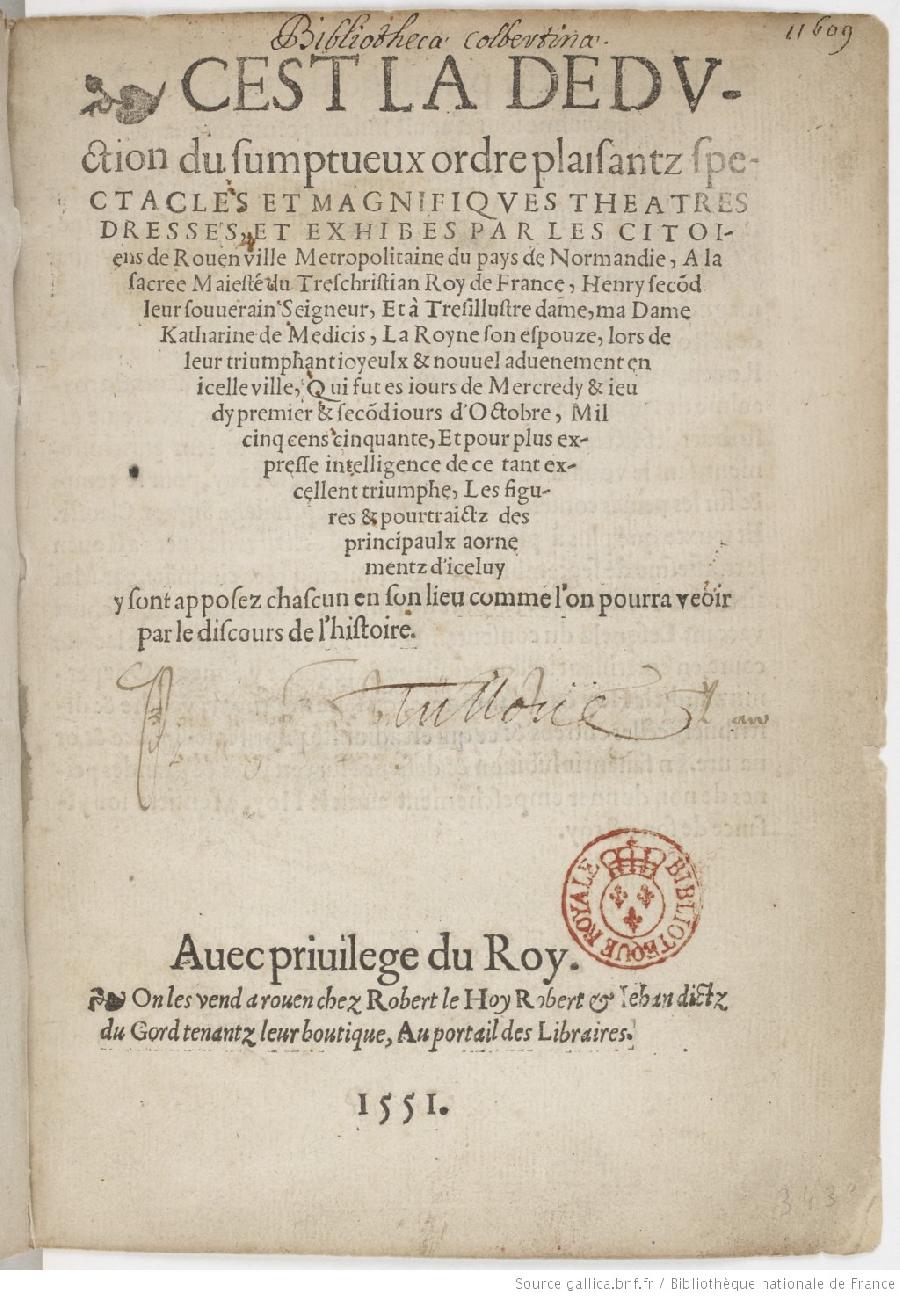 Bibliotheca Colbertina.
11609
CEST LA DEDV-
ction du ſumptueux ordre plaiſantz ſpe-
CTACLES ET MAGNIFIQVES THEATRES
DRESSES, ET EXHIBES PAR LES CITOI-
ens de Rouen ville Metropolitaine du pays de Normandie, A la
ſacree Maieſté du Treſchriſtian Roy de France, Henry ſecõd
leur ſouuerain Seigneur, Et à Treſilluſtre dame, ma Dame
Katharine de Medicis, La Royne ſon eſpouze, lors de
leur triumphant ioyeulx & nouuel aduenement en
icelle ville, Qui fut es iours de Mercredy & ieu
dy premier & ſecõd iours d'Octobre, Mil
cinq cens cinquante, Et pour plus ex-
preſſe intelligence de ce tant ex-
cellent triumphe, Les figu-
res & pourtraictz des
principaulx aorne
mentz d'iceluy
y ſont appoſez chaſcun en ſon lieu comme l'on pourra veoir
par le diſcours de l'hiſtoire.
BIBLIOTEQUE ROYALE
Auec priuilege du Roy.
On les vend a rouen chez Robert le Hoy Robert & Iehan dictz
du Gord tenantz leur boutique, Au portail des Libraires.
1551.
Source gallica.bnf.fr / Bibliothèque nationale de France